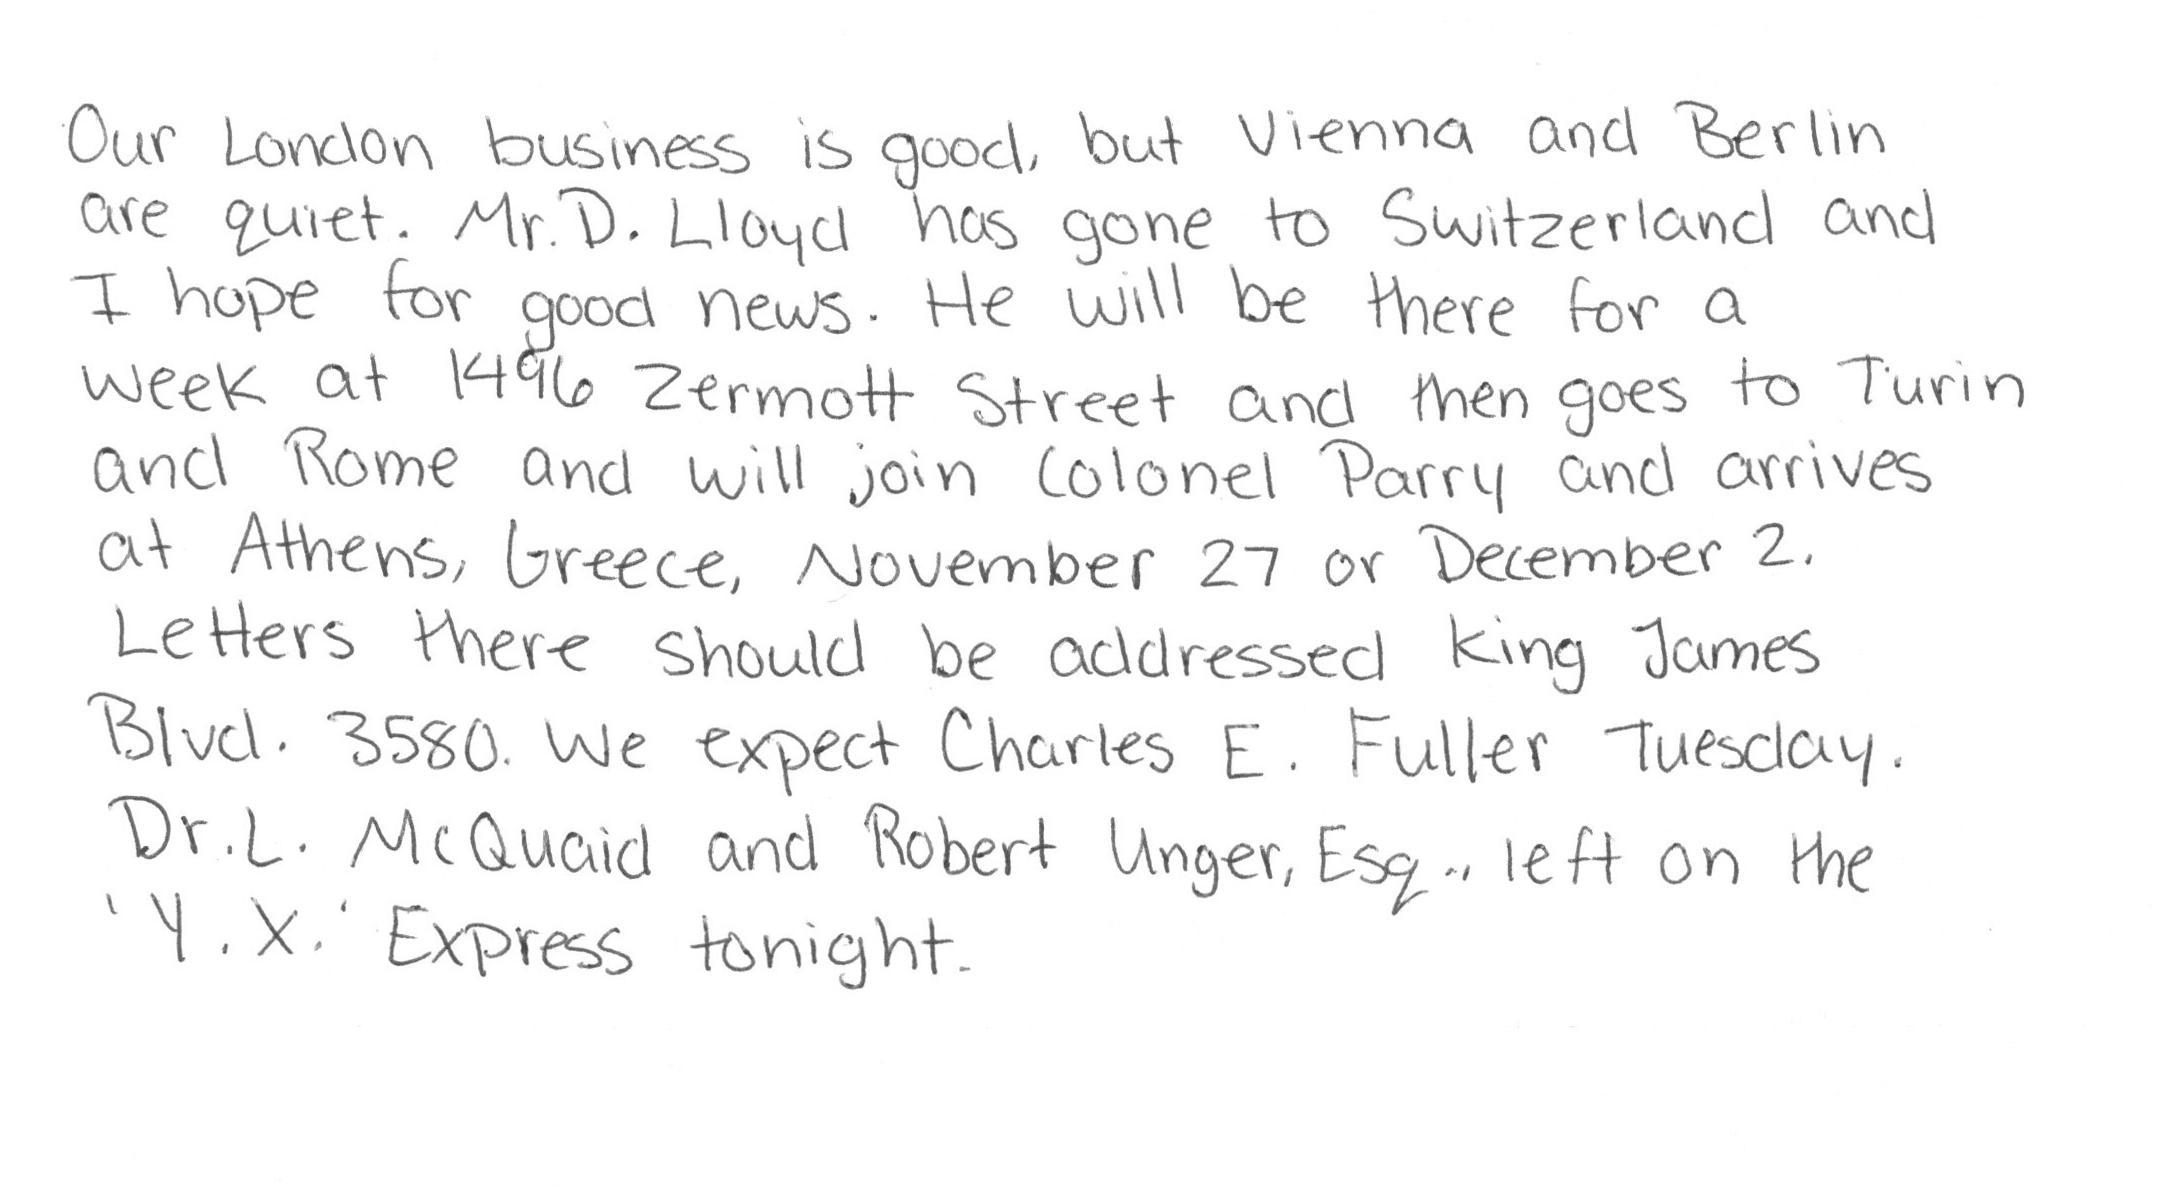 Our London business is good, but Vienna and Berlin
are quiet. Mr. D. Lloyd has gone to Switzerland and
I hope for good news. He will be there for a
week at 1496 Zermott Street and then goes to Turin
and Rome and will join Colonel Parry and arrives
at Athens, Greece, November 27 or December 2.
Letters there should be addressed King James
Blvd. 3580. We expect Charles E. Fuller Tuesday.
Dr. L. McQuaid and Robert Unger, Esq., left on the
'Y.X.' Express tonight.